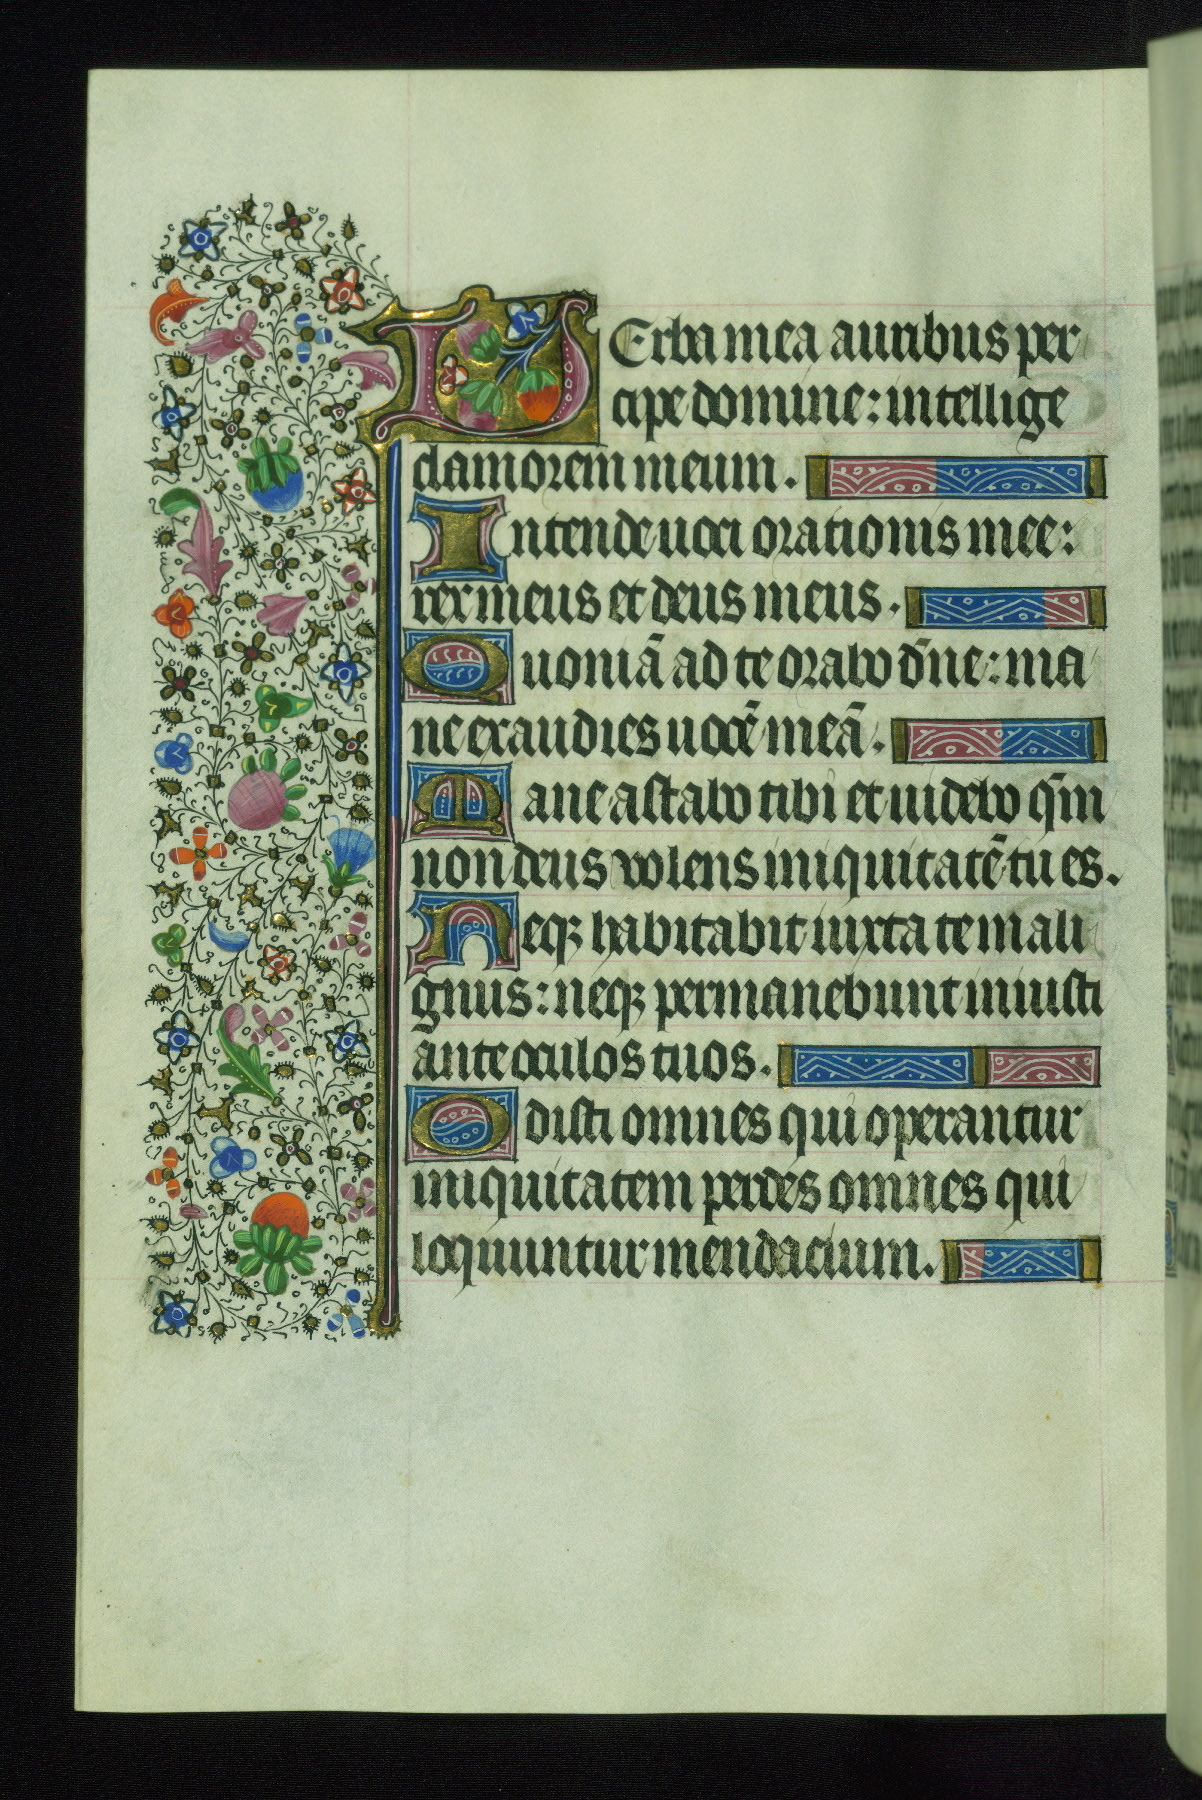 VErba mea auribus per
cipe domine: intellige
clamorem meum.
Intende uoci orationis mee:
rex meus et deus meus.
Quoniā ad te orabo dn̄e: ma
ne exaudies uocē meā.
Mane astabo tibi et uidebo qm̄
non deus volens iniquitatē tu es.
Neqꝫ habitabit iuxta te mali
gnus: neqꝫ permanebunt iniusti
ante oculos tuos.
Odisti omnes qui operantur
iniquitatem perdes omnes qui
loquuntur mendacium.